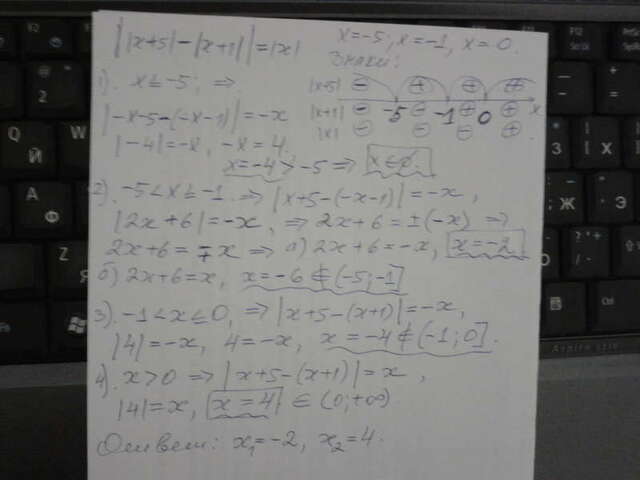 ||x+5|-|x+1||=|x|
x=-5; x=-1, x=0.
Знаки:
|x+5| - + + +
-5 -1 0 x
|x+1| - - + +
|x| - - - +
1). x≤-5; ⇒
|-x-5-(-x-1)|=-x
|-4|=-x, -x=4.
x=-4>-5 ⇒ x∈∅.
2). -5<x≤-1. ⇒ |x+5-(-x-1)|=-x,
|2x+6|=-x, ⇒ 2x+6=±(-x) ⇒
2x+6=∓x ⇒ а) 2x+6=-x, x=-2
б) 2x+6=x, x=-6∉(-5;-1]
3). -1<x≤0, ⇒ |x+5-(x+1)|=-x,
|4|=-x, 4=-x, x=-4∉(-1;0].
4). x>0 ⇒ |x+5-(x+1)|=x,
|4|=x, x=4 ∈ (0;+∞)
Ответ: x₁=-2, x₂=4.